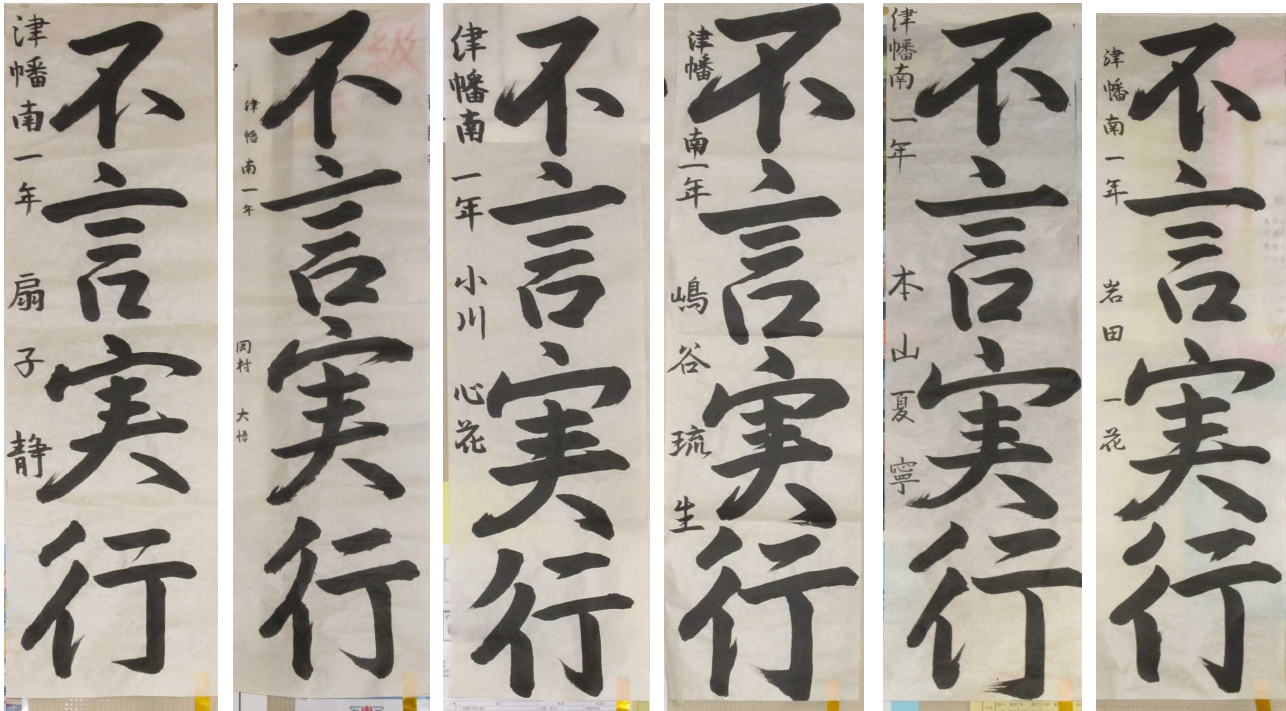 不言実行
津幡南一年 扇子 静
不言実行
津幡南一年 岡村 大悟
級
不言実行
津幡南一年 小川 心花
不言実行
津幡南一年 嶋谷琉生
不言実行
津幡南一年 本山夏寧
不言実行
津幡南一年 岩田 一花